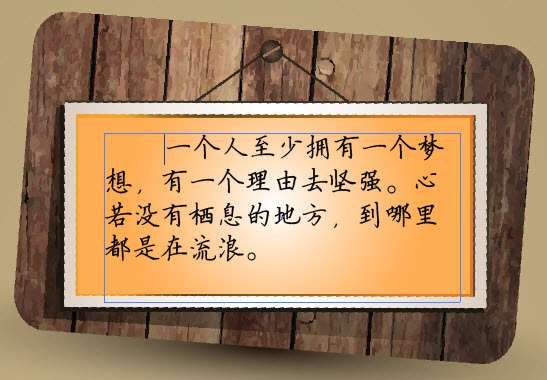 一个人至少拥有一个梦
想，有一个理由去坚强。心
若没有栖息的地方，到哪里
都是在流浪。